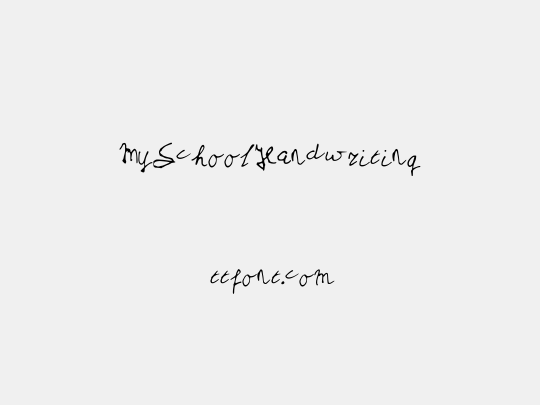 MySchoolHandwriting
ttfont.com